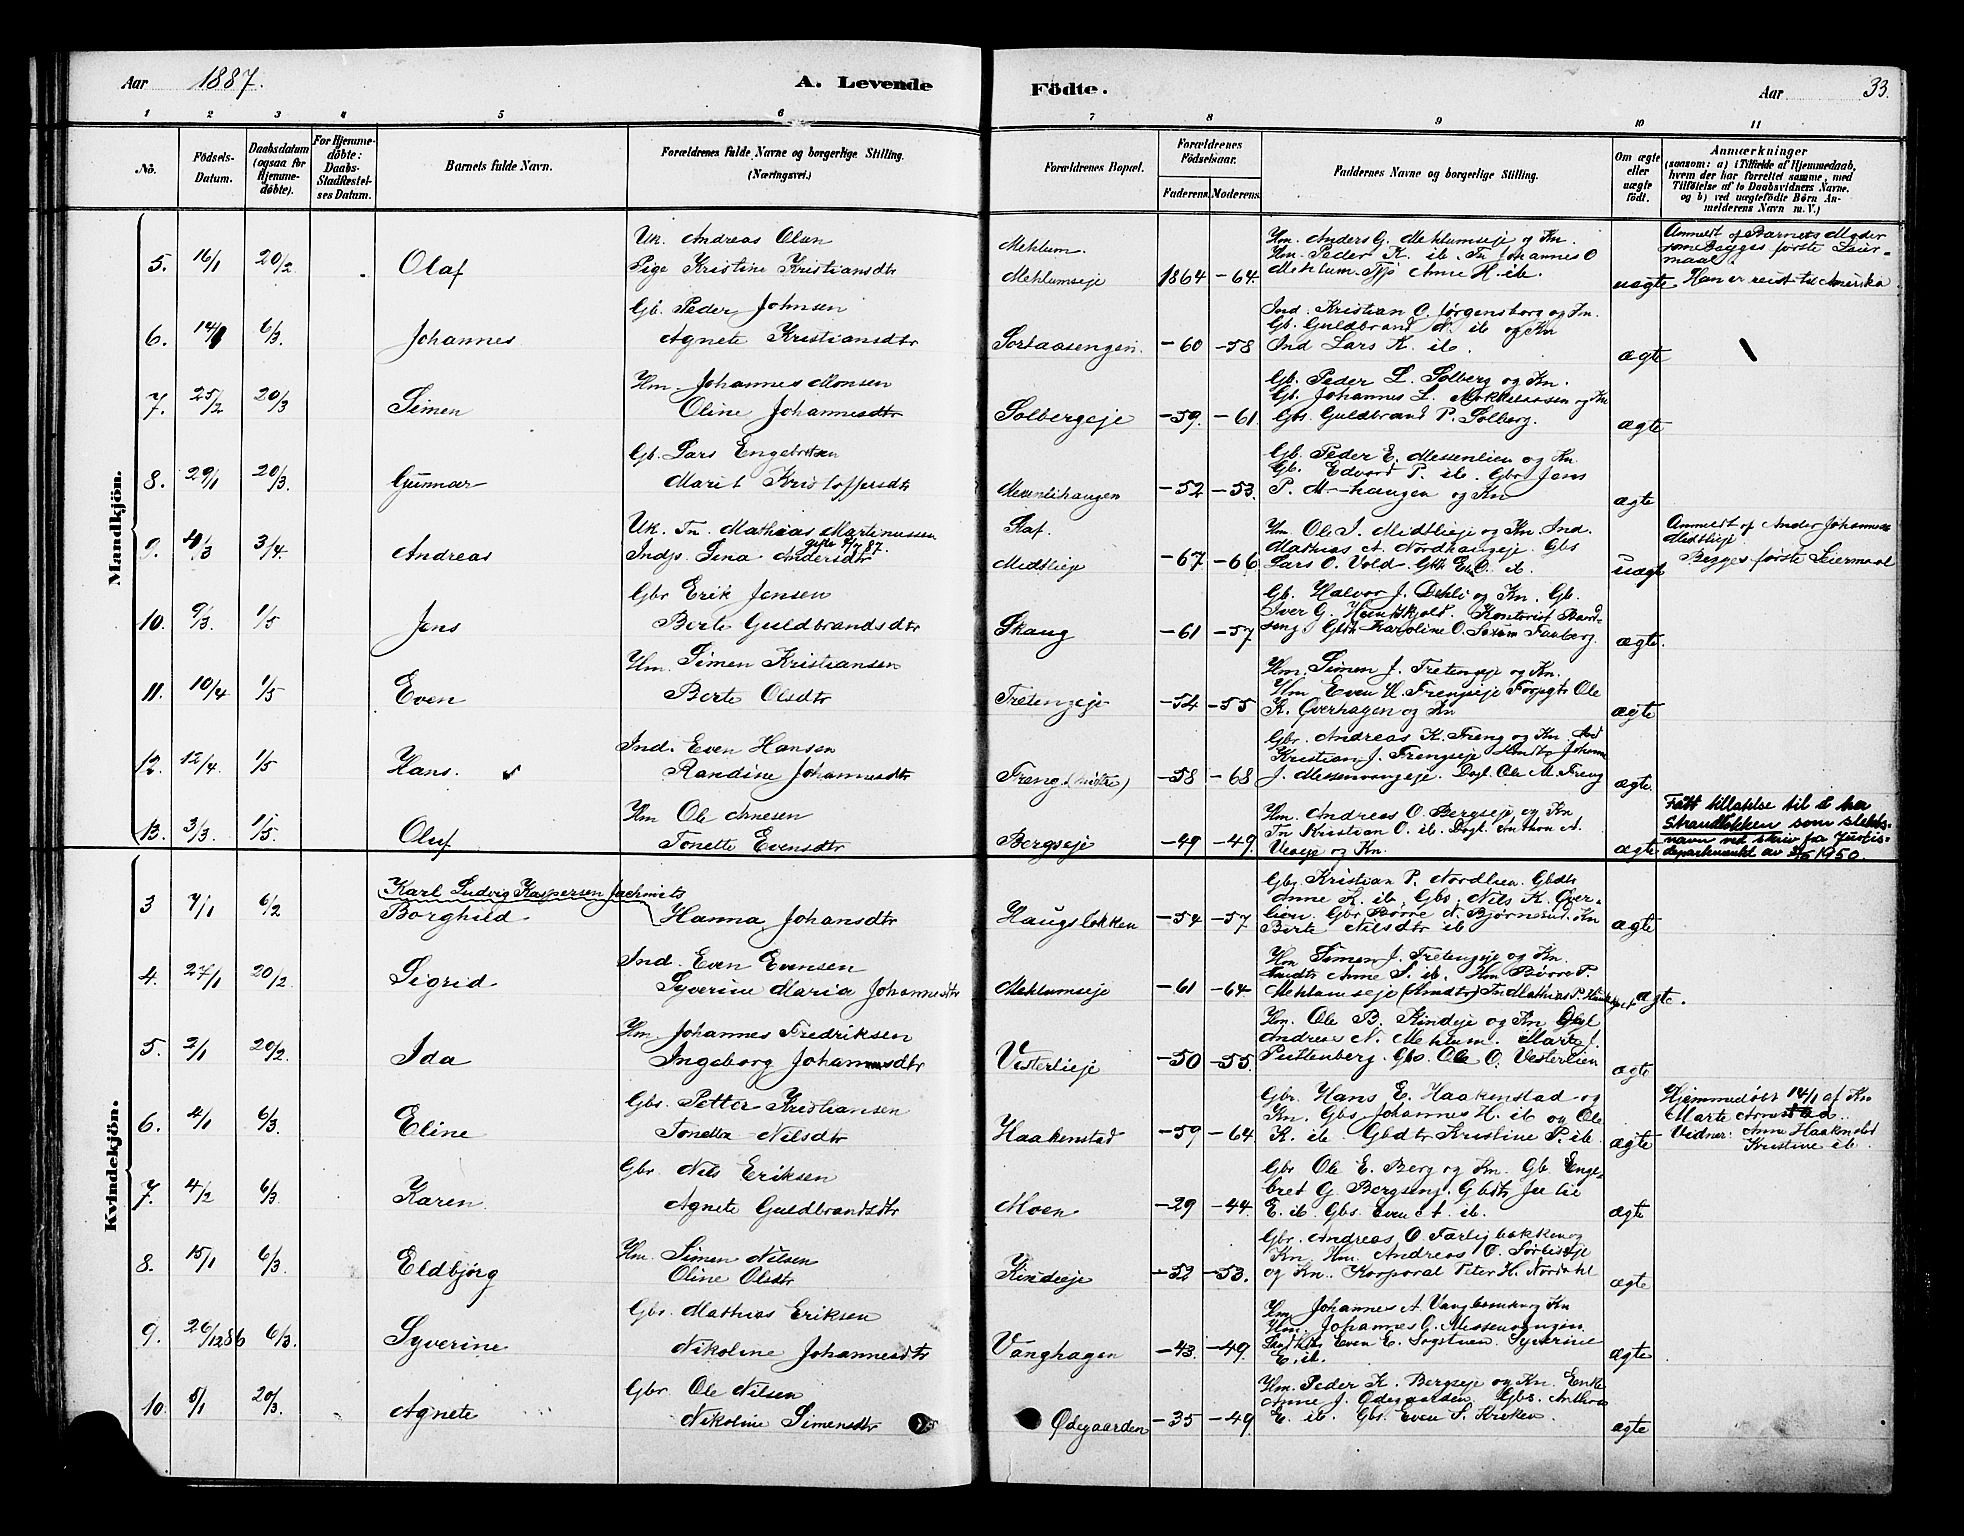 Aar 1887. A. Levende Födte. Aar 33.
1 2 3 4 5 6 7 8 9 10 11
No. Födsels-Datum. Daabsdatum (ogsaa for Hjemme-döbte). For Hjemme-döbte: Daabs-Stadfæstel-ses Datum. Barnets fulde Navn. Forældrenes fulde Navne og borgerlige Stilling. (Næringsvei.) Forældrenes Bopæl. Forældrenes Födselsaar. Faderens. Moderens. Faddernes Navne og borgerlige Stilling. Om ægte eller uægte födt. Anmærkninger (saasom: a) i Tilfælde af Hjemmedaab, hvem der har forrettet samme, med Tilföielse af to Daabsvidners Navne. og b) ved uægtefödte Börn Anmelderens Navn m. V.)
Mandkjön.
5. 16/1 20/2 Olaf
Uk. Andreas Olsen
Pige Kristine Kristiansdtr
Mehlum.
Mehlumseje 1864 -64.
Hm. Anders G. Mehlumseje og Kn.
Hm. Peder K. ib. Tn Johannes O
Mehlum. Anne H. ib.
uægte
Anmeldt af Barnets Moder
Begges første Leier-
maal.
Han er reist til Amerika
6. 6/3. Johannes
Gb. Peder Johnsen
Agnete Kristiansdtr
Sortaasengen. -60 -58
Ind. Kristian O. Jørgensborg og Kn.
Gb. Guldbrand N. ib og Kn
Ind Lars K. ib.
ægte
7. 25/2 20/3 Simen
Hm. Johannes Monsen
Oline Johannesdtr
Solbergeje -59. -61.
Gb. Peder L. Solberg og Kn.
Gb. Johannes L. og Kn
Gbs Guldbrand P. Solberg.
ægte
8. 29/1 20/3. Gunnar
Gb. Lars Engebretsen
Marit Kristoffersdtr
Messenlihaugen -52 -53.
Gb. Peder E. Messenlien og Kn.
Gb. Edvard P. ib. Gbr Jens
P. M-haugen og Kn
ægte
9. 4/3 3/4 Andreas
Uk. Tn. Mathias Martinussen
gift 87.
Indp. Sina Andersdtr
Raf.
Midtlieje -67 -66
Hm Ole I. Midtlieje og Kn. Ind.
Mathias A. Nordhaugeje. Gbs
Lars O. Vold. ib.
uægte
Anmeldt af Anders Johannes
Midtlieje
Begges første Leiermaal
10. 9/3. 1/5 Jens
Gbr Erik Jensen
Berte Guldbrandsdtr
Skaug -61 -57
Gb. Halvor J. Dehli og Kn. Gb.
Iver G. Kontorist
Karoline O. Faaberg.
ægte.
11. 10/4 1/5 Even
Hm. Simen Kristiansen
Berte Olsdtr
Tretengeje -54 -55
Hm. Simen J. Tretengeje og Kn.
Hm Even H. Frengseje Ole
K. Overhagen og Kn
ægte
12. 12/4. 1/5 Hans.
Ind. Even Hansen
Randine Johannesdtr
Freng -58 -68
Gbr. Andreas K. Freng og Kn Ind
Kristian J. Frengseje
J. Messenvangeje. Ole M. Freng
ægte.
13. 3/3. 1/5 Oluf
Hm Ole Arnesen
Tonette Evensdtr
Bergseje -49 -49.
Hm. Andreas O. Bergseje og Kn
Tn Kristian O. ib. Anthon A.
og Kn.
ægte
Fått tillatelse til å ha
Strandløkken som slekts-
navn ved skriv fra Justis-
departementet av 1950.
Kvindekjön.
3 7/1 6/2 Borghild
Karl Ludvig Kaspersen
Hanna Johansdtr
Haugsløkken -54 -57
Gbs Kristian P. Nordlien. Gbdtr
Anne K. ib. Gbs. Nils K. Over-
lien. Gbr Børre N. Kn
Berte Nilsdtr ib
ægte
4. 27/1 20/2. Sigrid
Ind. Even Evensen
Syverine Maria Johannesdtr
Mehlumseje -61 -64
Hm Simen J. Tretengeje og Kn.
Anne S. ib. Hm. Børre P.
Mehlumseje Tn Mathias P.
ægte.
5. 2/1 20/2. Ida
Hm. Johannes Fredriksen
Ingeborg Johannesdtr
Vesterlieje -50 -55.
Hm. Ole B. Kindeje og Kn
Andreas N. Mehlum. Marte J.
Gbs. Ole O. Vesterlien
ægte
6. 4/1 6/3. Eline
Gbs. Petter Kristiansen
Tonetta Nilsdtr
Haakenstad -59 -64
Gbr. Hans E. Haakenstad og
Kn. Gbs Johannes H. ib og Ole
K. ib. Gbdtr Kristine P. ib.
ægte
Hjemmedøbt 14/1 af Kn
Marte
Vidner: Anne Haakenstad
Kristine ib.
7. 4/2 6/3. Karen
Gbr. Nils Eriksen
Agnete Guldbrandsdtr
Moen -29 -44.
Gbr Ole E. Berg og Kn. Gb. Enge-
bret G. Bergseng. Gbdtr Julie
E. ib. Gbs. Even A. ib.
ægte
8. 15/1 6/3. Eldbjørg
Hm. Simen Nilsen
Oline Olsdtr
Kindeje -52 -53.
Gbr. Andreas O. og
Kn. Hm. Andreas O.
og Kn. Korporal Peter H. Nordahl
ægte
9. 26/12 86 6/3. Syverine
Gbs. Mathias Eriksen
Nikoline Johannesdtr
Vanghagen -43. -49.
Hm. Johannes A. og Kn
Hm. Johannes G. Messenvangen.
Even E. Sogstuen. Syverine
E. ib.
ægte
10. 8/1 20/3. Agnete
Gbr. Ole Nilsen
Nikoline Simensdtr
Ødegaarden -35 -49.
Hm. Peder K. Bergseje og Kn. Enke
Anne J. Ødegaarden Gbs. Anthon
E. ib. Gbs. Even S. Kroken.
ægte